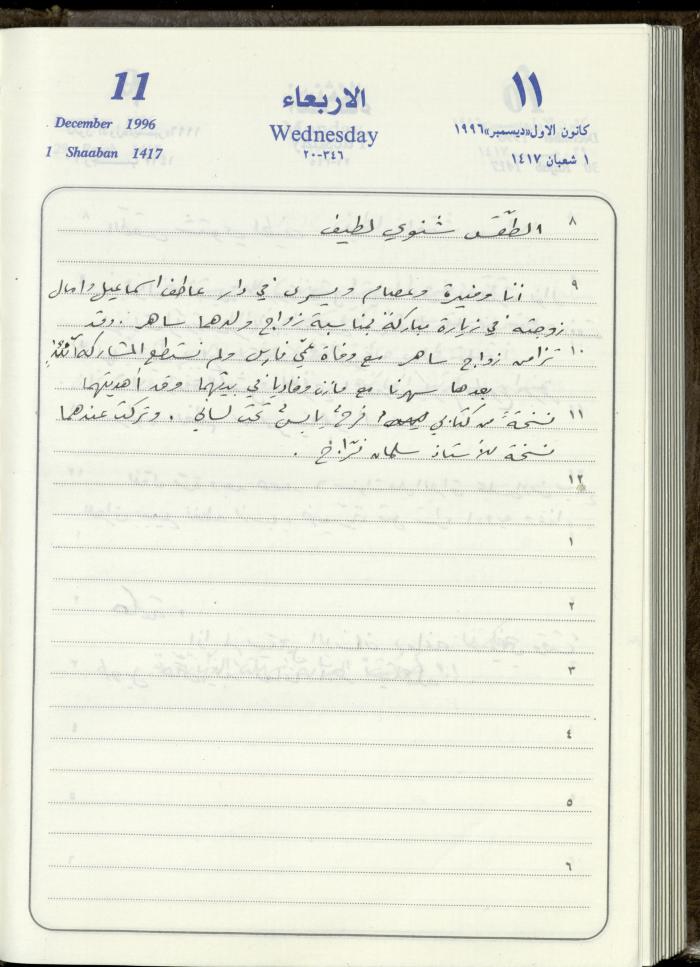 11
December 1996
1 Shaaban 1417
الاربعاء
Wednesday
٢٠-٣٤٦
١١
كانون الاول «ديسمبر» ١٩٩٦
١ شعبان ١٤١٧
٨ الطقس شتوي لطيف
٩ أنا ومنيرة وعصام ويسرى في دار عاطف اسماعيل وامال
زوجته في زيارة مباركة بمناسبة زواج ولدهما ساهر. وقد
١٠ تزامن زواج ساهر مع وفاة عليّ فارس ولم نستطع المشاركة آنئذٍ
بعدها سهرنا مع مازن وفاديا في بيتهما وقد أهديتهما
١١ نسخةً من كتابي فرحٌ يابسٌ تحت لساني. وتركت عندهما
نسخة للأستاذ سلمان فرّاج.
١٢
١
٢
٣
٤
٥
٦